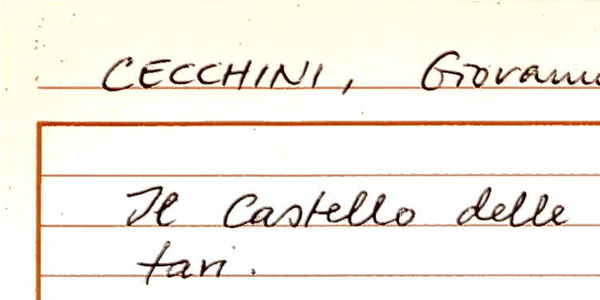 CECCHINI, Giovann
Il Castello delle
tari.